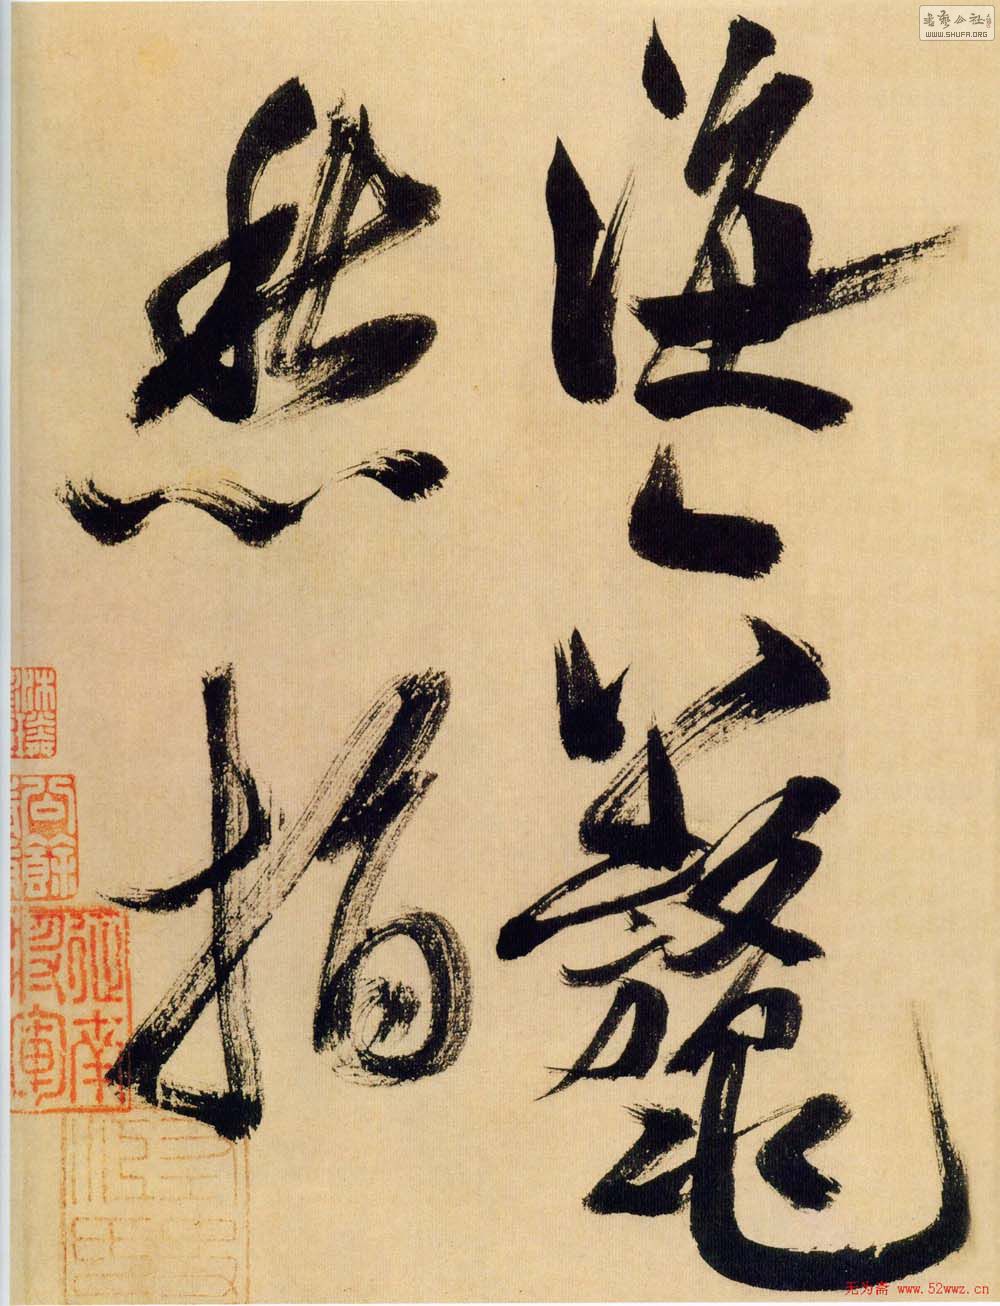 海六鳌
愁指
书艺公社
WWW.SHUFA.ORG
无为斋 www.52wwz.cn